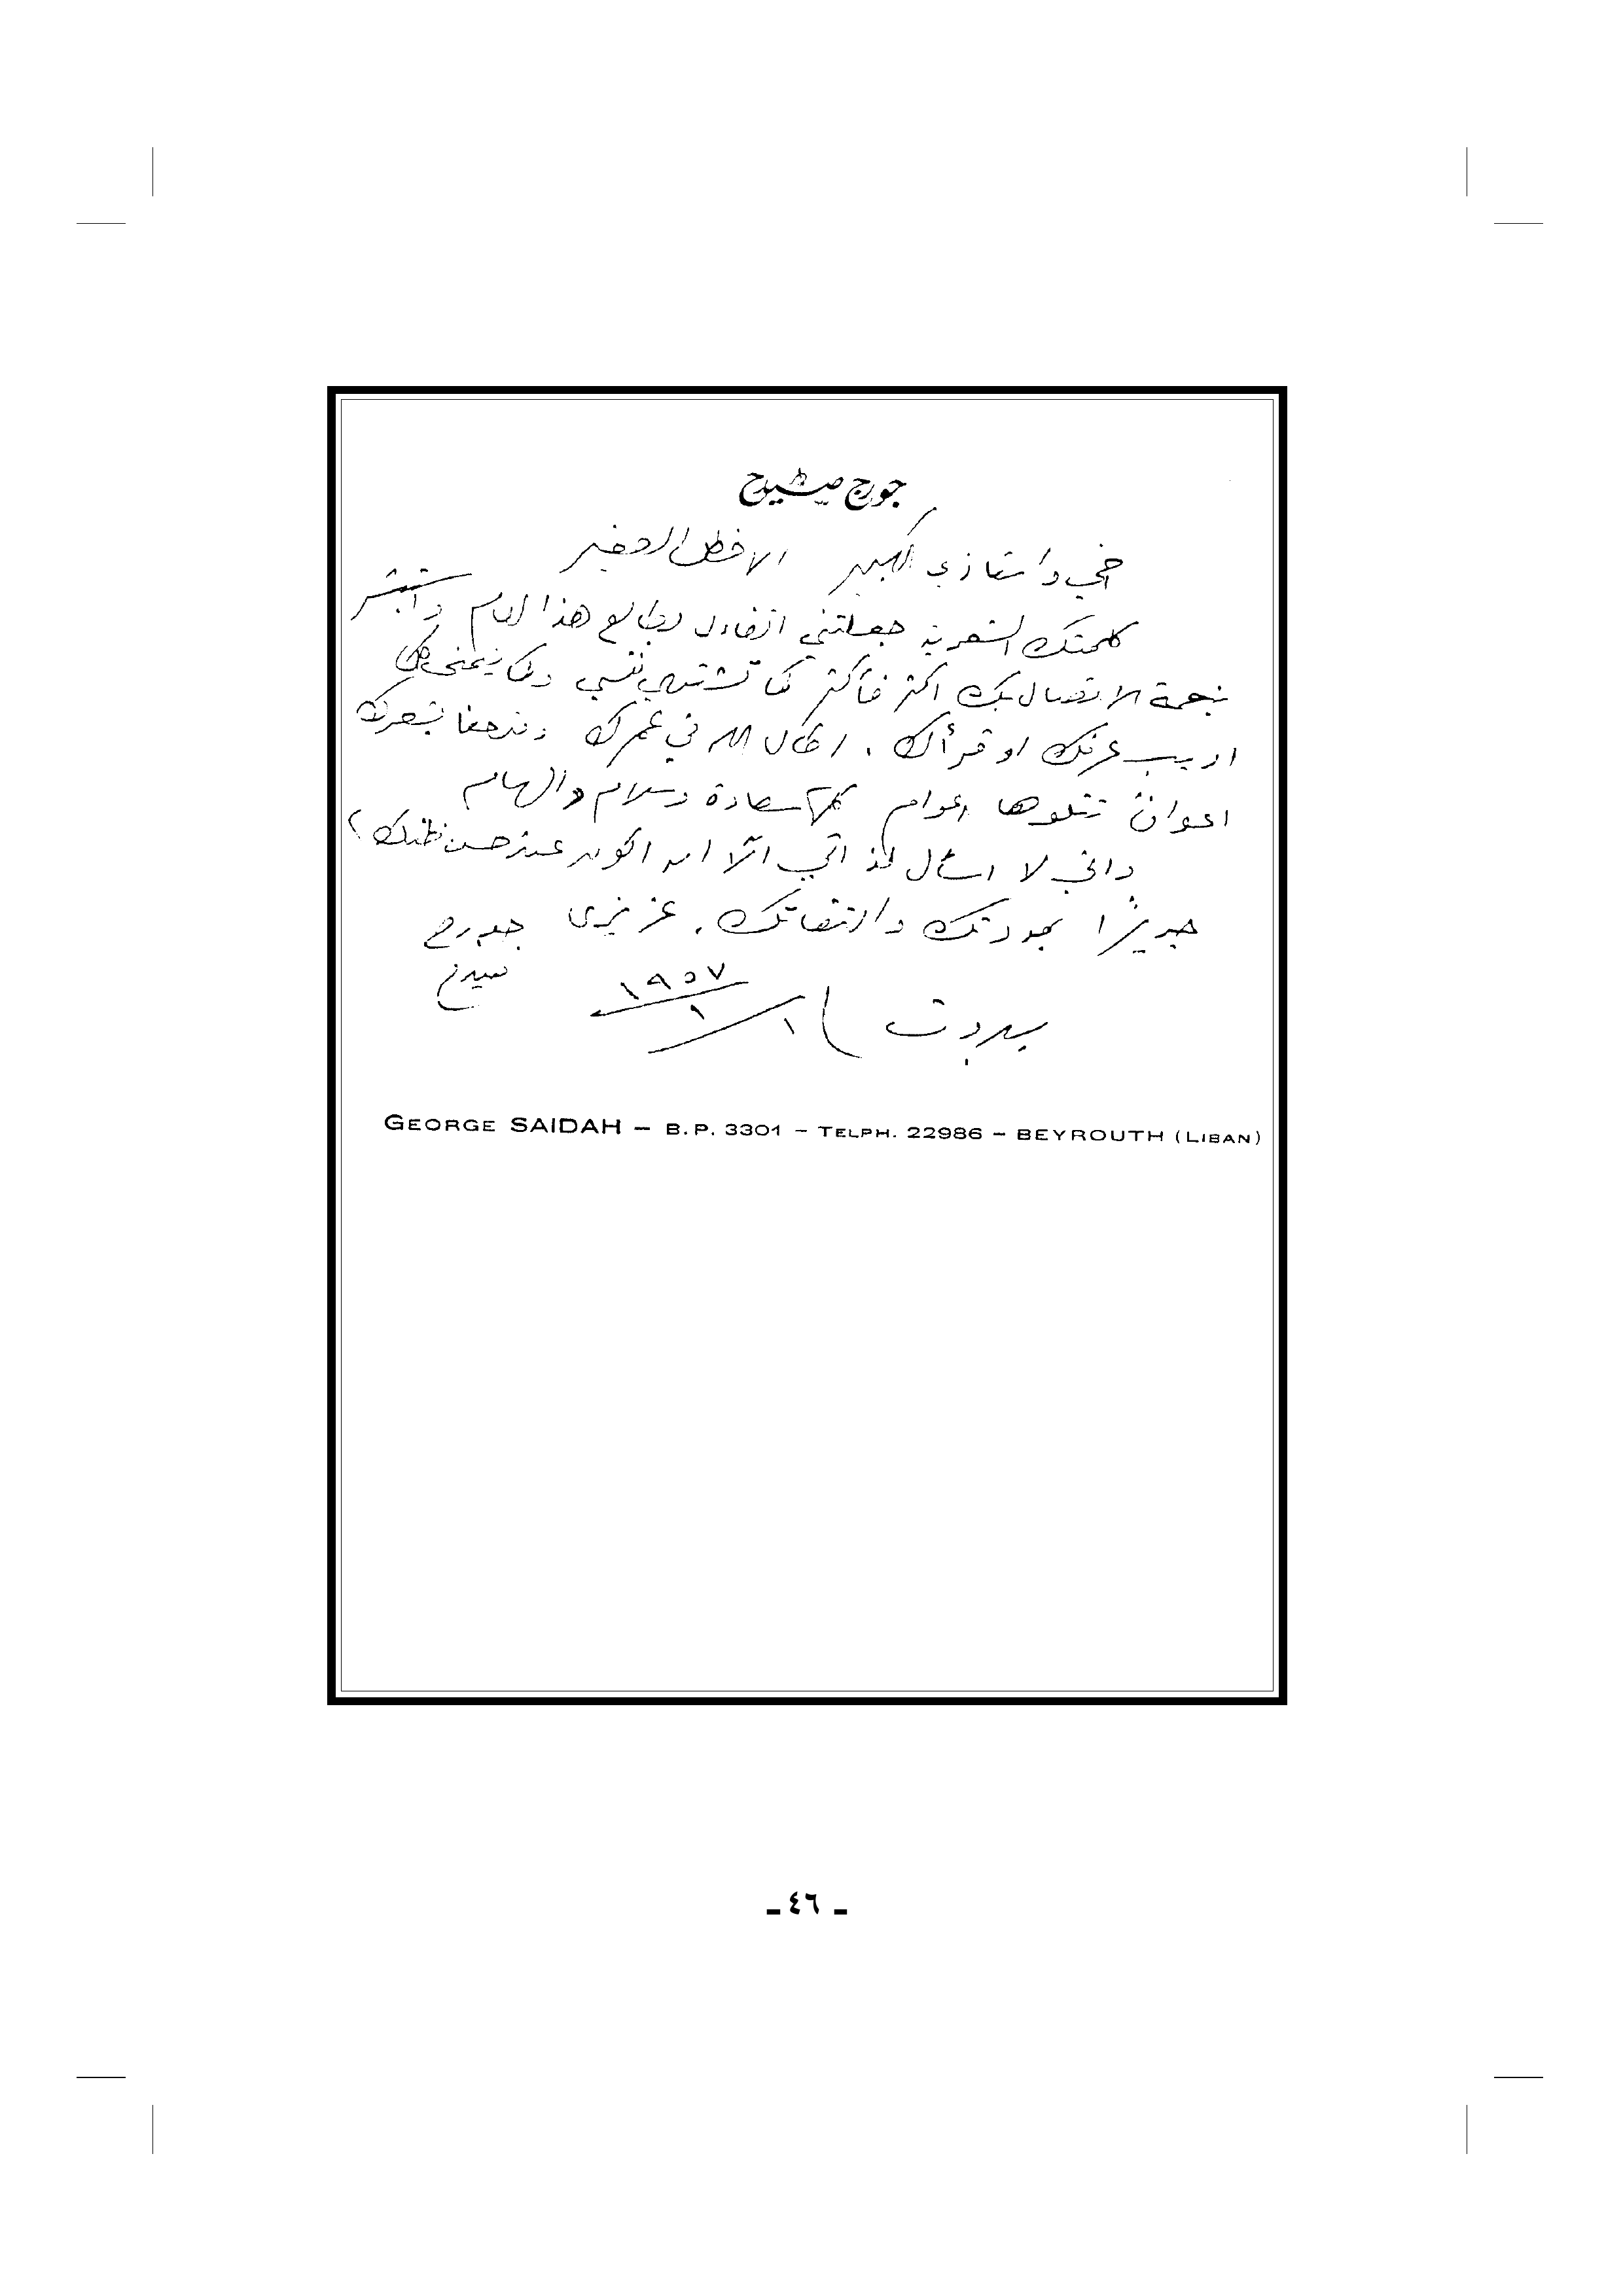 جورج صيدح
أخي واستاذي الكبير الاخطل الصغير
كلمتك الشعرية جعلتني اتفاءل بطالع هذا العام وأستبشر
بنعمة الاتصال بك اكثر فأكثر كما تشتهي نفسي وكما يتمنى كل
اديب عرفك او قرأك . اطال الله في عمرك ونفحنا بشعرك
اعوانً تتلوها اعوام كلها سعادة وسلام والهام
واني لا اسأل لذاتي الّا ان اكون عند حسن ظنك ،
جديرًا بمودتك والتفاتك . عزيزي جورج
صيدح
بيروت ١ / ١ / ١٩٥٧
GEORGE SAIDAH – B.P. 3301 – TELPH. 22986 – BEYROUTH (LIBAN)
ـ ٤٦ ـ